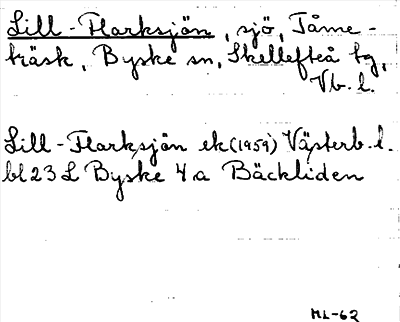 Lill-Flarksjön, sjö, Tåme-
träsk, Byske sn, Skellefteå tg,
Vb. l.
Lill-Flarksjön ek (1959) Västerb. l.
bl 23 L Byske 4 a Bäckliden
ML-62